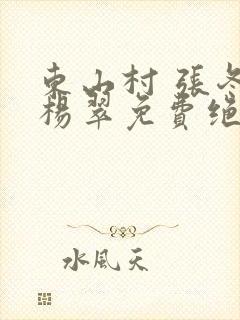 東山村 張冬
楊翠免費絕
水風天